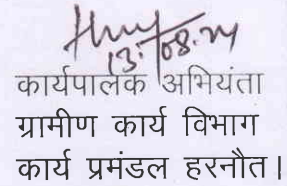 13.08.24
कार्यपालक अभियंता
ग्रामीण कार्य विभाग
कार्य प्रमंडल हरनौत।